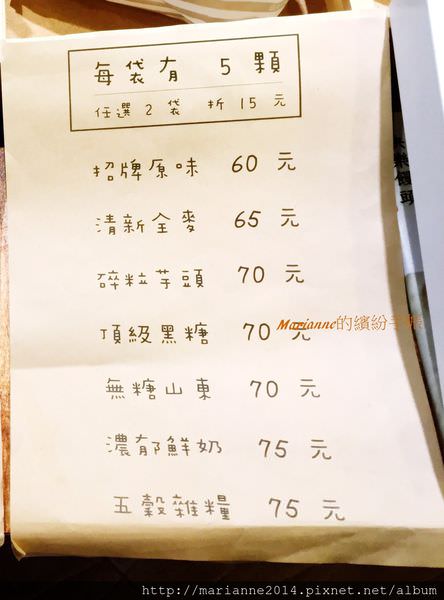 每袋有 5 顆
任選 2 袋 折 15 元
招牌原味 60 元
清新全麥 65 元
碎粒芋頭 70 元
頂級黑糖 70 元
無糖山東 70 元
濃郁鮮奶 75 元
五穀雜糧 75 元
Marianne的繽紛手帳
饅頭
http://marianne2014.pixnet.net/album